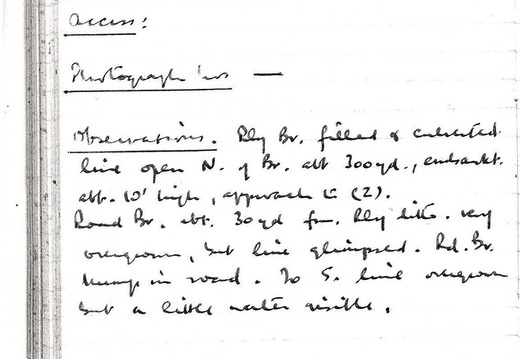 Access:
Photograph Nos —
Observations. Rly Br. filled & culverted.
line open N. of Br. abt 300yd., embankt.
abt. 10' high, approach to (2).
Road Br. abt. 30yd fm. Rly ditto. very
overgrown, but line glimpsed. Rd. Br.
hump in road. To S. line overgrown
but a little water visible.